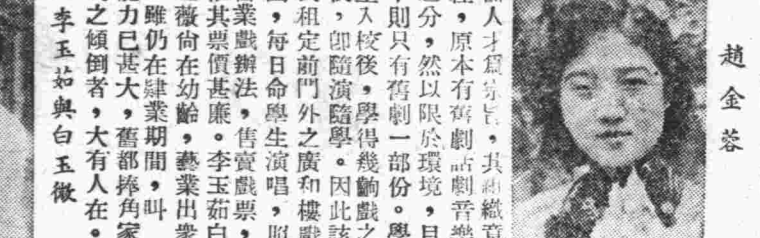 趙金蓉
人才爲宗旨，其組織音
，原本有舊劇話劇音樂
之分，然以限於環境，目
則只有舊劇一部份。學
入校後，學得幾齣戲之
後，卽隨演隨學。因此該
租定前門外之廣和樓戲
，每日命學生演唱，照
業戲辦法，售賣戲票，
其票價甚廉。李玉茹白
薇尚在幼齡，藝業出衆
雖仍在肄業期間，叫
能力已甚大，舊都捧角家
之傾倒者，大有人在。
李玉茹與白玉薇